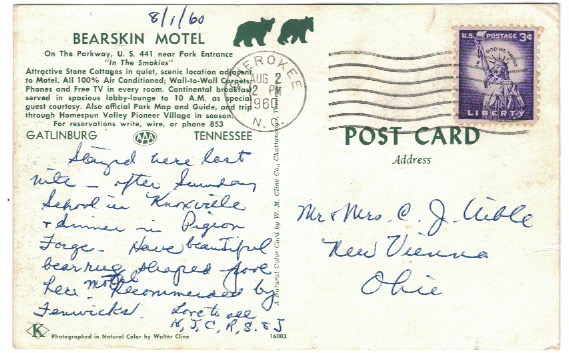 8/1/60
BEARSKIN MOTEL
On The Parkway, U. S. 441 near Park Entrance
"In The Smokies"
Attractive Stone Cottages in quiet, scenic location adjacent
to Motel. All 100% Air Conditioned; Wall-to-Wall Carpets,
Phones and Free TV in every room. Continental breakfast
served in spacious lobby-lounge to 10 A.M. as special
guest courtesy. Also official Park Map and Guide, and trip
through Homespun Valley Pioneer Village in season.
For reservations write, wire, or phone 853
GATLINBURG AAA TENNESSEE
Stayed here last
nite - after Sunday
School in Knoxville
& dinner in Pigeon
Forge. Have beautiful
bear rug shaped pool
here. Motel Recommended by
Fenwicks. Love to all
H, J, C, R, S & J
K
Photographed in Natural Color by Walter Cline
16003
A Natural Color Card by W. M. Cline Co., Chattanooga
CHEROKEE
AUG 2
2 PM
1960
N. C.
U.S. POSTAGE 3¢
IN GOD WE TRUST
LIBERTY
POST CARD
Address
Mr & Mrs. C. J. Uible
New Vienna
Ohio